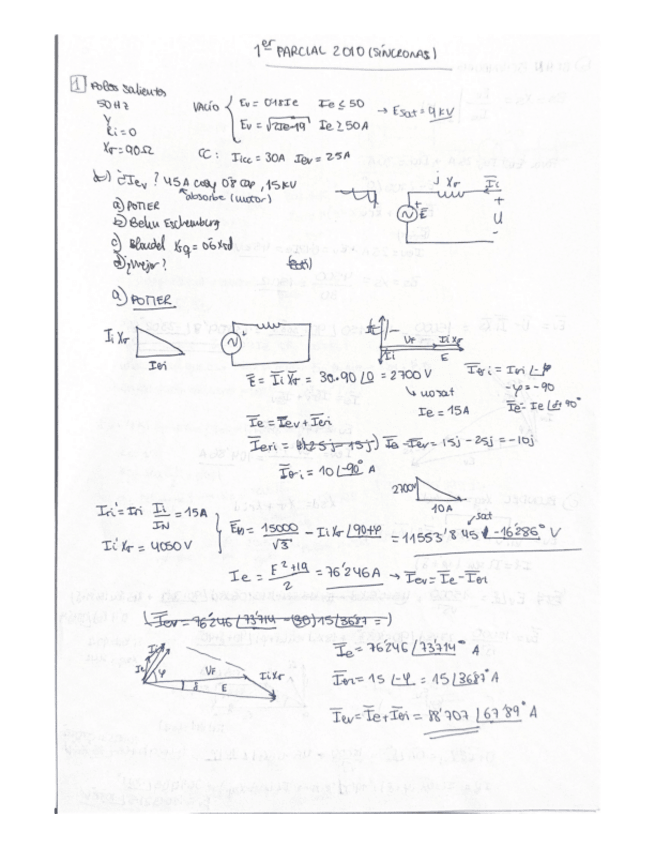 1er PARCIAL 2010 (SÍNCRONAS)
1 Polos Salientes
50 Hz
Y
Ri=0
Xσ=90Ω
VACÍO { Ev = 0'18Ie Ie ≤ 50
Ev = √(2Ie-19) Ie ≥ 50A → Esat = 9kV
CC: Icc = 30A Iev = 25A
¿Iev? 45A cosφ 0'8 cap, 15kV
absorbe (motor)
a) POTIER
b) Behn Eschemburg
c) Blondel Xsq = 0'6 Xsd
d) ¿Mejor?
j Xσ Ii
+ E
+ U -
a) POTIER
Ii Xσ
Iσi
VF IiXσ
Ii E
E = Ii Xσ = 30·90 ∟0 = 2700 V
↳ no sat
Ie = 15A
Iσi = Iσi ∟-φ
-φ = -90
Ie = Ie ∟δ+90°
Ie = Iev + Iσi
Iσi = Ie - Iev = 15j - 25j = -10j
Iσi = 10 ∟-90° A
2700
10A
Iσi' = Iσi Ii/IN = 15A
Ii'Xσ = 4050V
= 15000/√3 - Ii Xσ ∟90+φ = 11553'845 ∟-16'286° V
sat
Ie = (E²+19)/2 = 76'246 A → Iev = Ie - Iσi
Iev = 76'246 ∟73'714
φ VF IiXσ
δ E
Ie = 76'246 ∟73'714° A
Iσi = 15 ∟-φ = 15 ∟36'87° A
Iev = Ie + Iσi = 88'707 ∟67'89° A